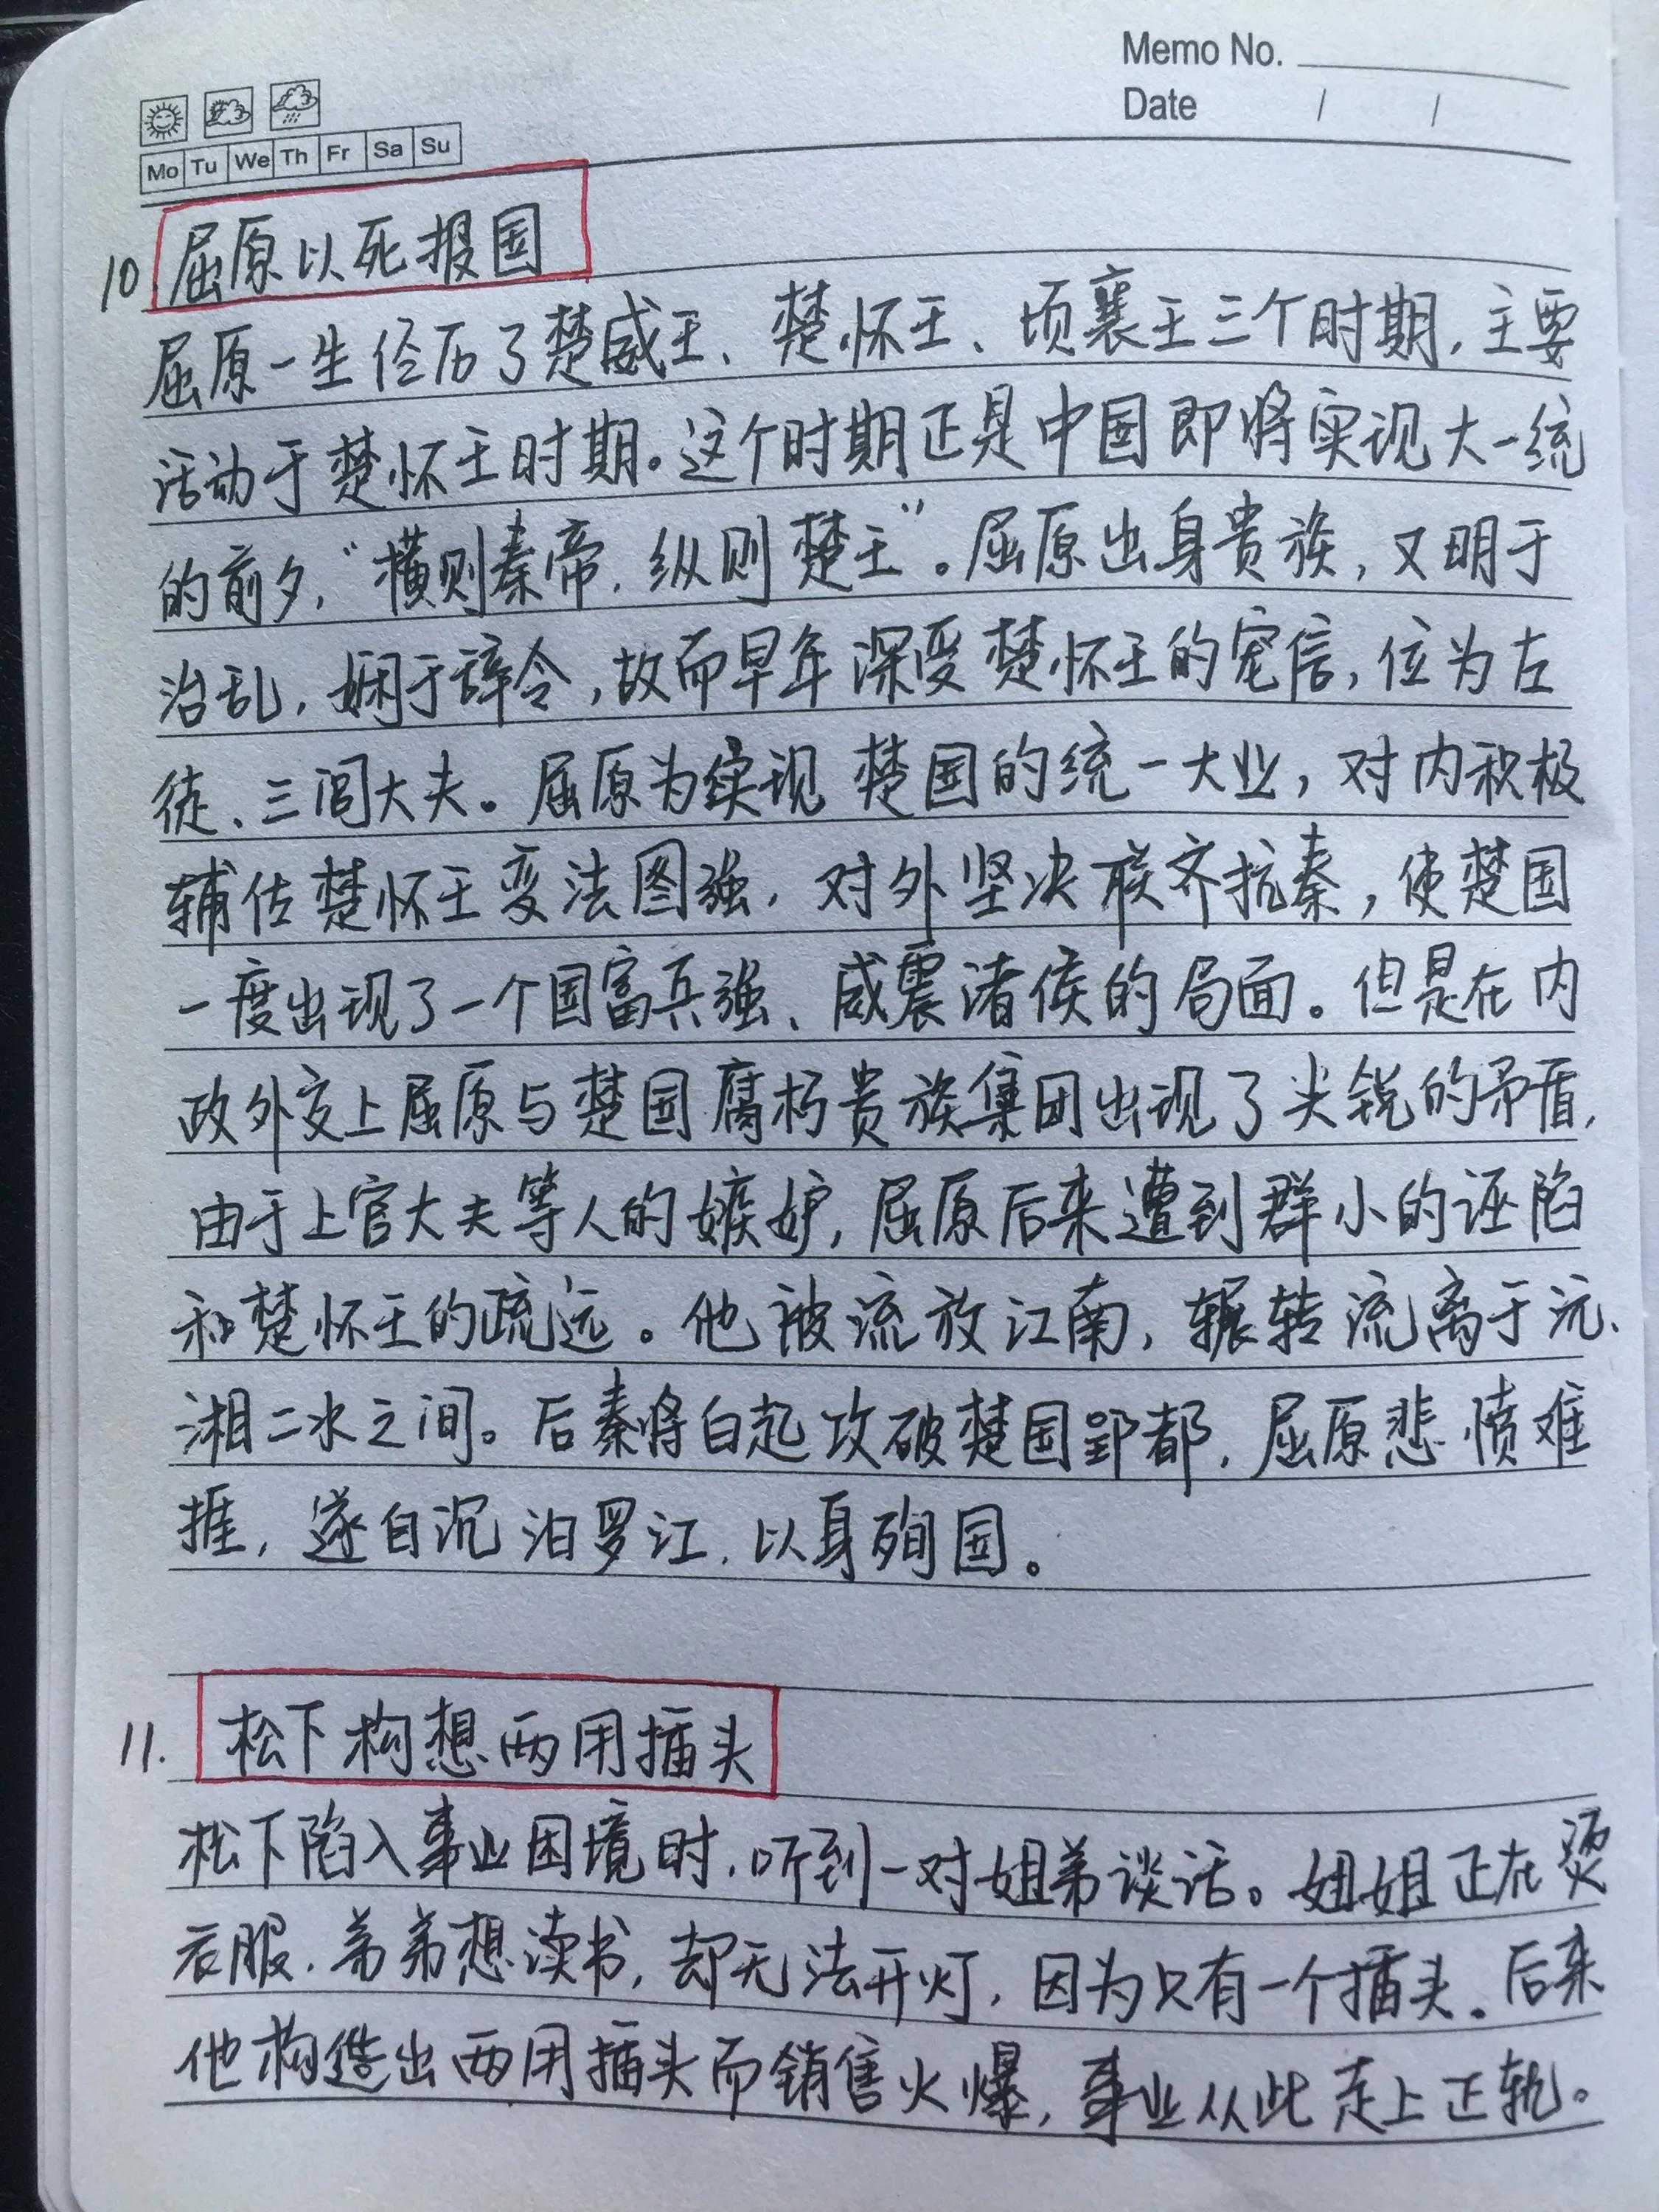 Memo No.
Date / /
Mo Tu We Th Fr Sa Su
10 屈原以死报国
屈原一生经历了楚威王、楚怀王、顷襄王三个时期,主要
活动于楚怀王时期。这个时期正是中国即将实现大一统
的前夕,“横则秦帝,纵则楚王”。屈原出身贵族,又明于
治乱,娴于辞令,故而早年深受楚怀王的宠信,位为左
徒、三闾大夫。屈原为实现楚国的统一大业,对内积极
辅佐楚怀王变法图强,对外坚决联齐抗秦,使楚国
一度出现了一个国富兵强、威震诸侯的局面。但是在内
政外交上屈原与楚国腐朽贵族集团出现了尖锐的矛盾,
由于上官大夫等人的嫉妒,屈原后来遭到群小的诬陷
和楚怀王的疏远。他被流放江南,辗转流离于沅、
湘二水之间。后秦将白起攻破楚国郢都,屈原悲愤难
捱,遂自沉汨罗江,以身殉国。
11. 松下构想两用插头
松下陷入事业困境时,听到一对姐弟谈话。姐姐正在烫
衣服,弟弟想读书,却无法开灯,因为只有一个插头。后来
他构造出两用插头而销售火爆,事业从此走上正轨。